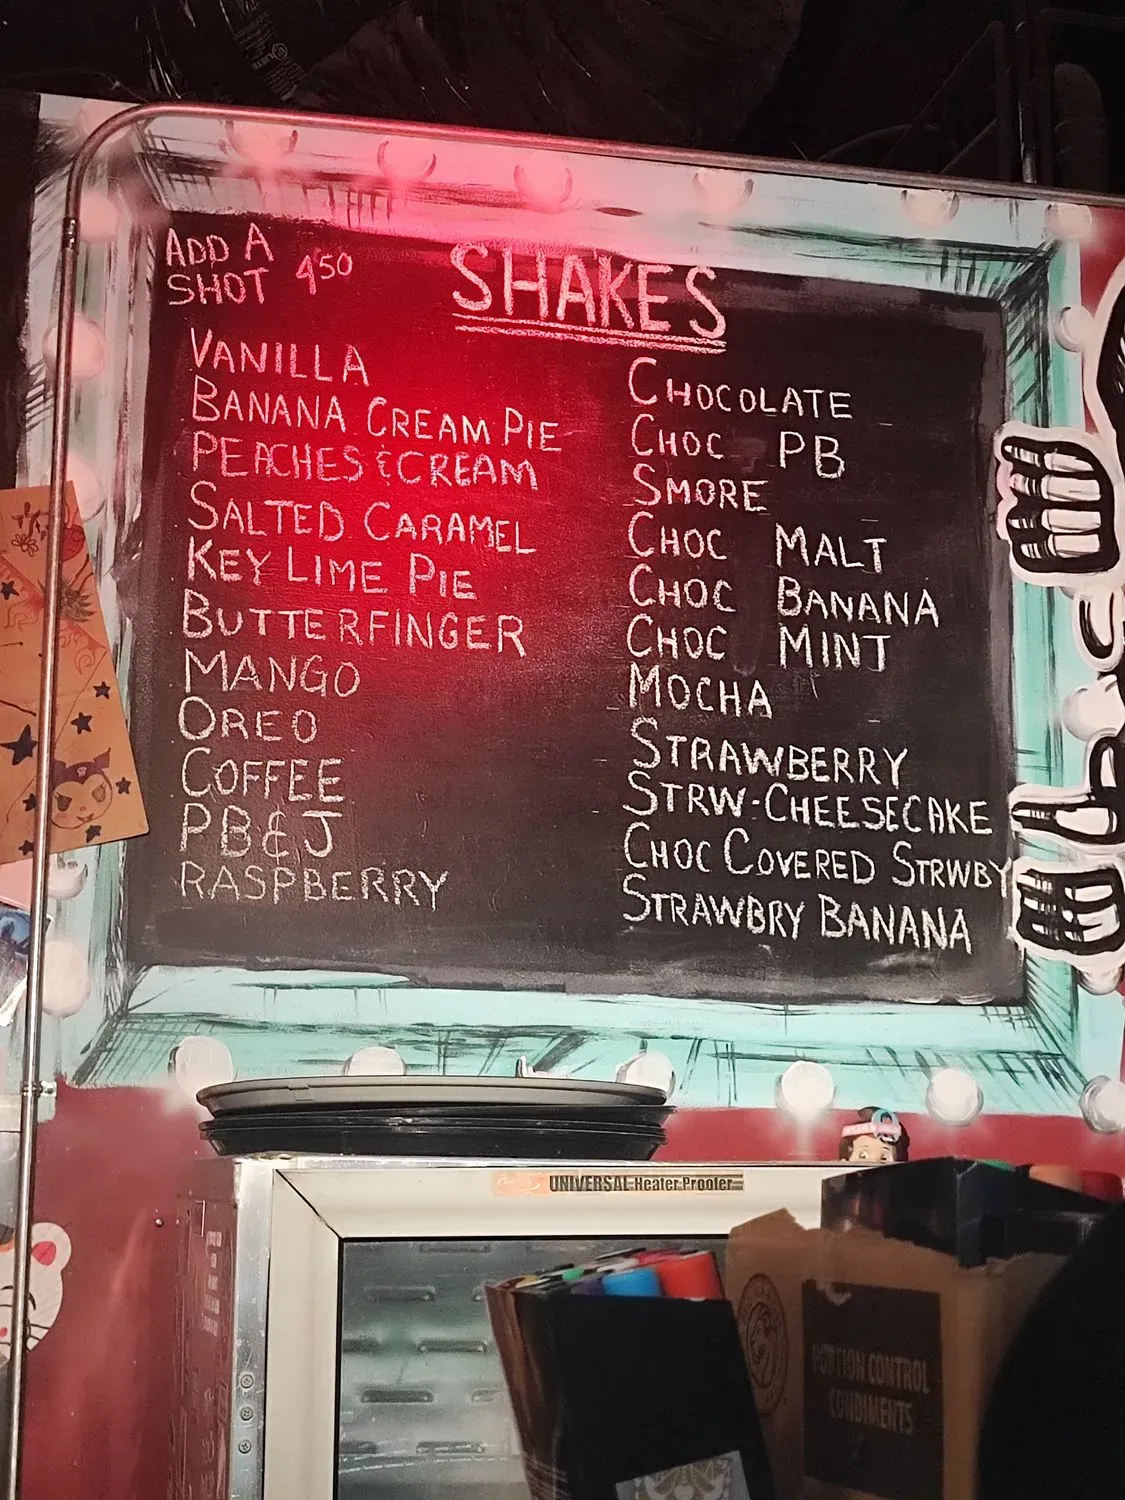 ADD A
SHOT 4.50
SHAKES
VANILLA
BANANA CREAM PIE
PEACHES & CREAM
SALTED CARAMEL
KEY LIME PIE
BUTTERFINGER
MANGO
OREO
COFFEE
PB & J
RASPBERRY
CHOCOLATE
CHOC PB
SMORE
CHOC MALT
CHOC BANANA
CHOC MINT
MOCHA
STRAWBERRY
STRW-CHEESECAKE
CHOC COVERED STRWBY
STRAWBRY BANANA
UNIVERSAL Heater Proofer
PORTION CONTROL
CONDIMENTS